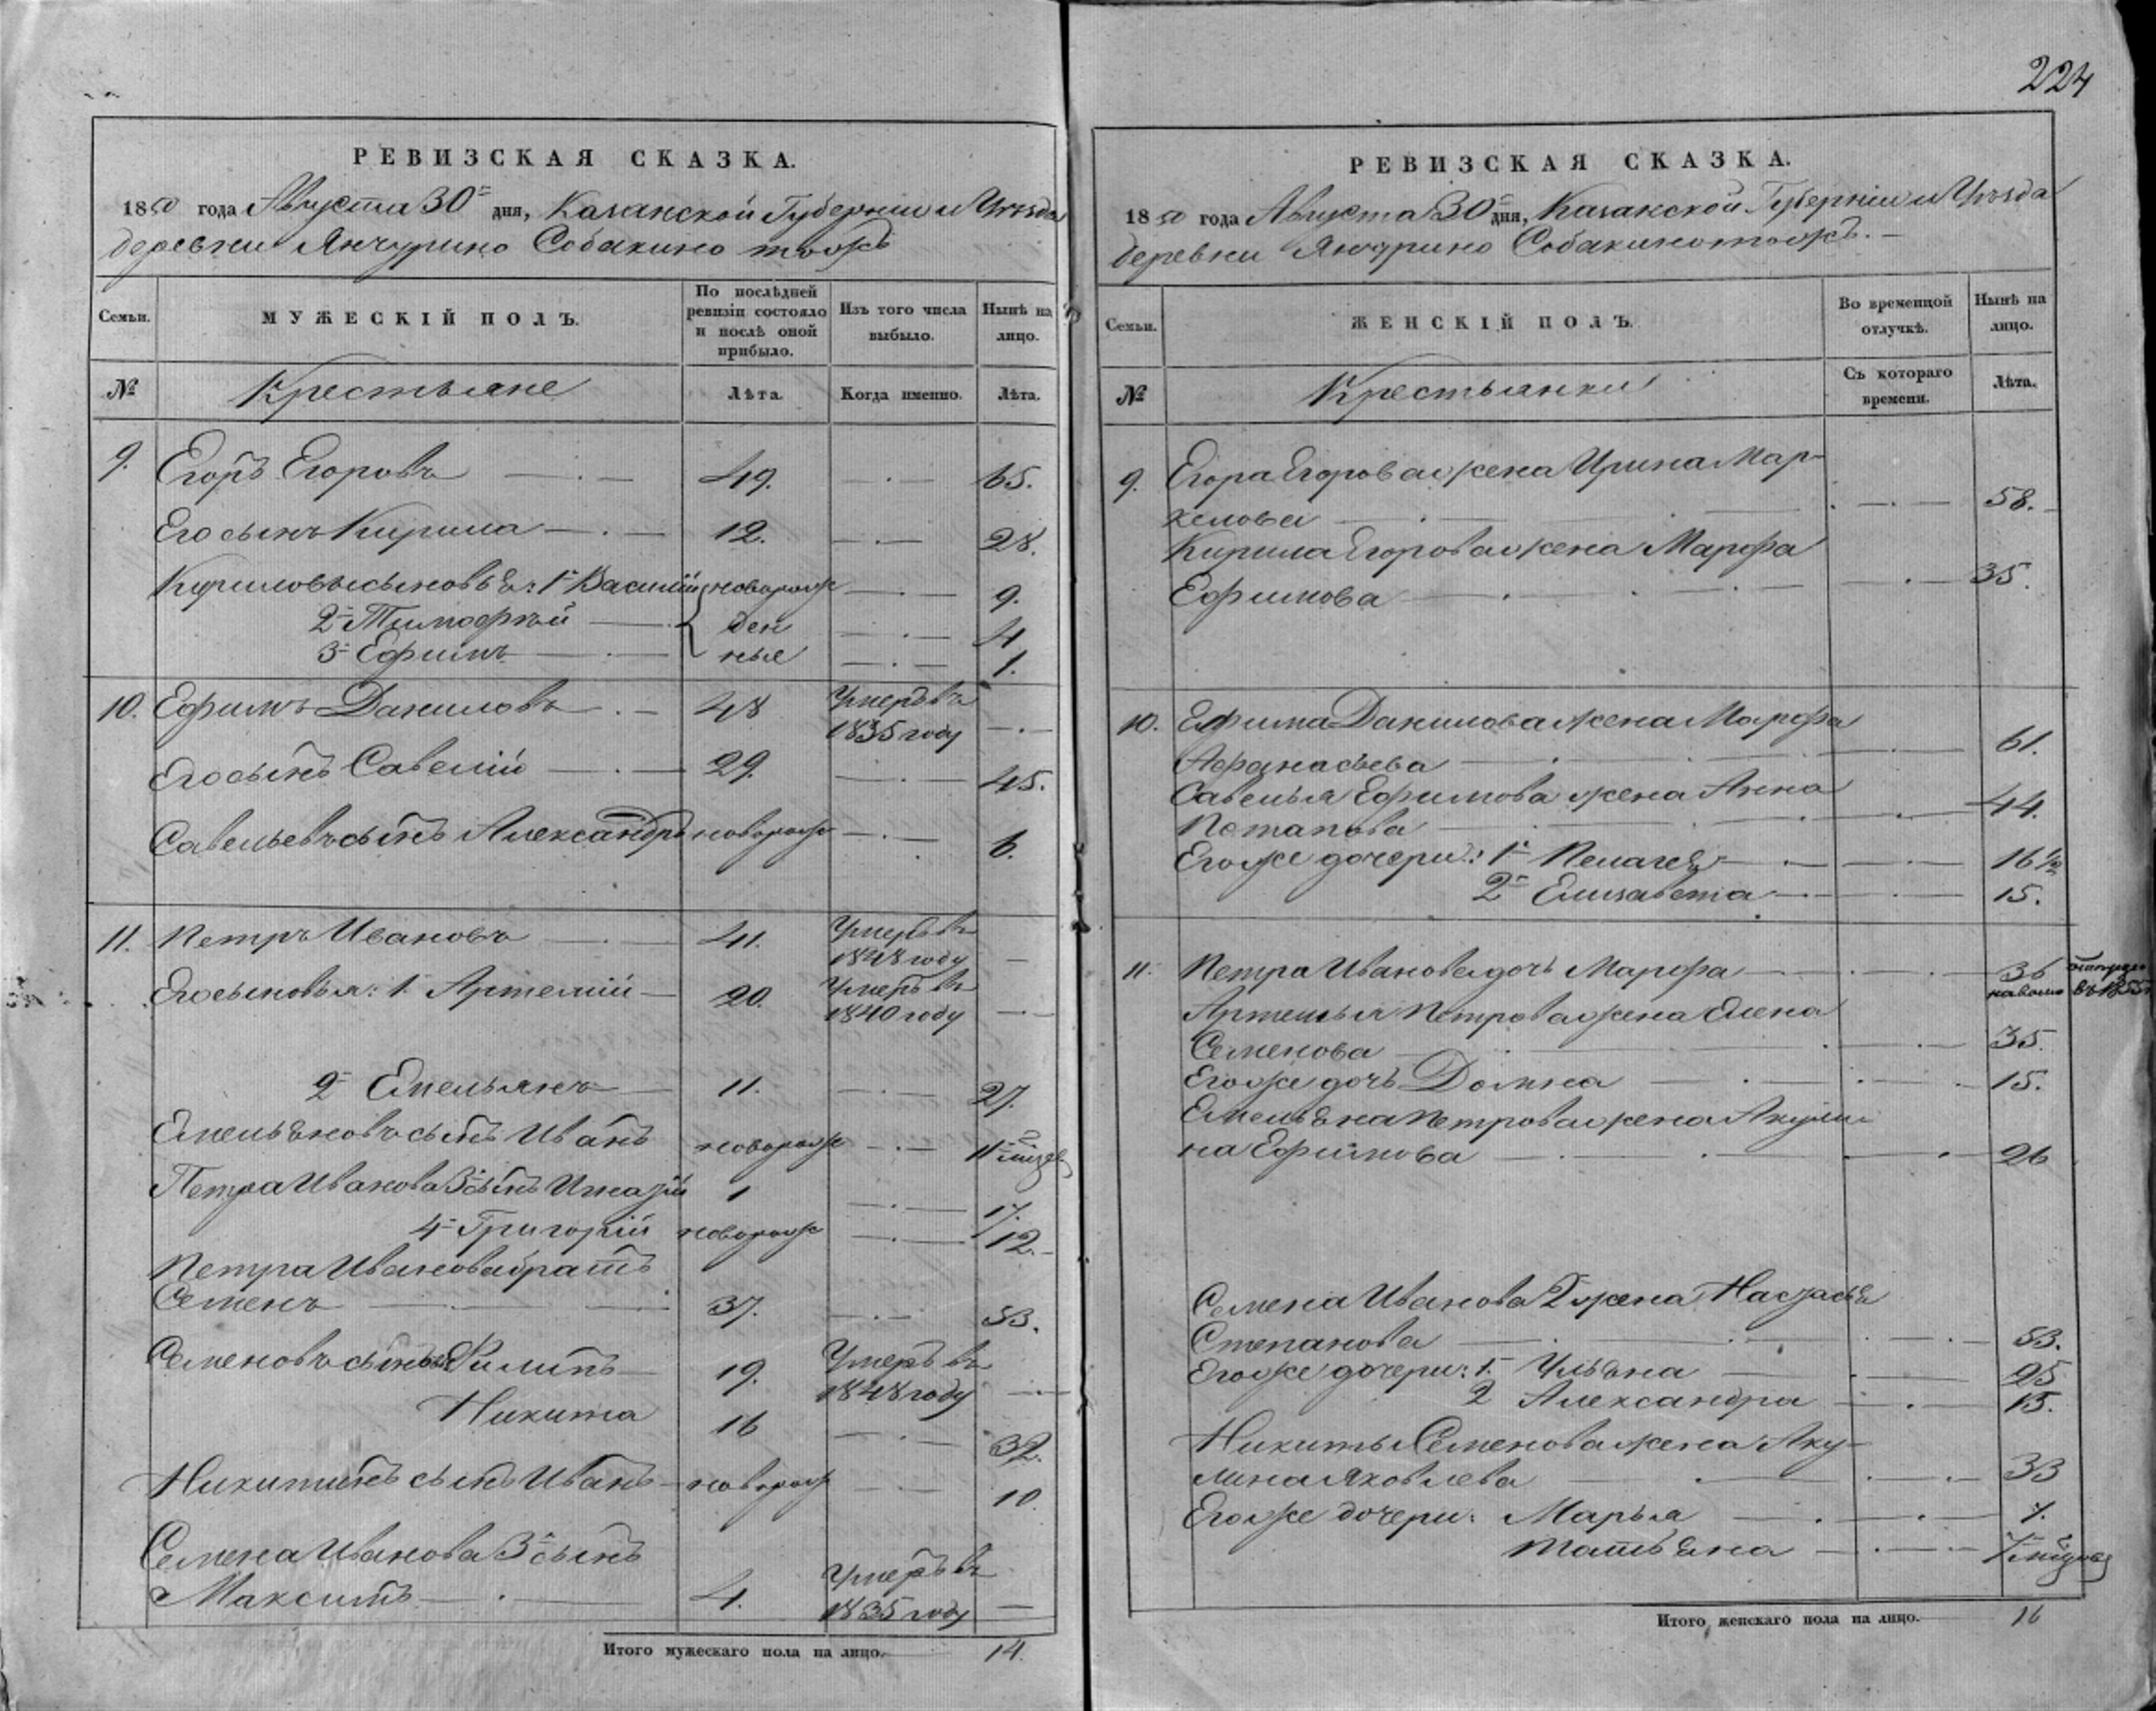 224
РЕВИЗСКАЯ СКАЗКА.
1850 года Августа 30 дня, Казанской Губернии и Уезда
деревни Янчурино Собакино тожъ
Семьи.
МУЖЕСКІЙ ПОЛЪ.
По послѣдней
ревизіи состояло
и послѣ оной
прибыло.
Изъ того числа
выбыло.
Нынѣ на
лицо.
№
Крестьяне
Лѣта.
Когда именно.
Лѣта.
9. Егоръ Егоровъ 49. 65.
Его сынъ Кирила 12. 28.
Кириловы сыновья: 1й Василій новорож 9.
2й Тимофѣй ден 4
3й Ефимъ ные 1.
10. Ефимъ Даниловъ 48 Умеръ въ
1835 году
Его сынъ Савелій 29. 45.
Савельевъ сынъ Александръ новорож 6.
11. Петръ Ивановъ 41. Умеръ въ
1848 году
Его сыновья: 1. Артемій 20. Умеръ въ
1840 году
2й Емельянъ 11. 27.
Емельяновъ сынъ Иванъ новорож 11
Петра Иванова 3й сынъ 1 17.
4й Григорій новорож 12.
Петра Иванова братъ
Семенъ 37. 53.
Семеновъ сынья Филипъ 19. Умеръ въ
1848 году
Никита 16 32.
Никитинъ сынъ Иванъ новорож 10.
Семена Иванова 3й сынъ
Максимъ 4. Умеръ въ
1835 году
Итого мужескаго пола на лицо. 14.
РЕВИЗСКАЯ СКАЗКА.
1850 года Августа 30 дня, Казанской Губерніи и Уѣзда
деревни Янчурино Собакино тожъ.
Семьи.
ЖЕНСКІЙ ПОЛЪ.
Во временной
отлучкѣ.
Нынѣ на
лицо.
№
Крестьянки
Съ котораго
времени.
Лѣта.
9. Егора Егорова жена Ирина Мар-
келова 58.
Кирила Егорова жена Марфа
Ефимова 35.
10. Ефима Данилова жена Марфа
Афанасьева 61.
Савелья Ефимова жена Анна
Потапова 44.
Его же дочери: 1я Пелагея 16 1/2
2я Елизавета 15.
11. Петра Иванова дочь Марфа 36
Артемья Петрова жена Елена
Семенова 35.
Его же дочь Домна 15.
Емельяна Петрова жена Акули
на Ефимова 26
Семена Иванова 2 жена Настасья
Степанова 53.
Его же дочери: 1. Ульяна 25
2 Александра 13.
Никиты Семенова жена Аку-
лина Яковлева 33
Его же дочери: Марья 7.
Татьяна
Итого женскаго пола на лицо. 16